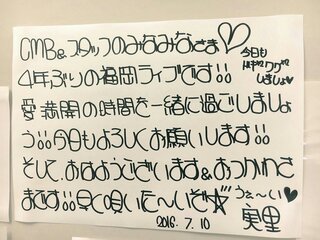 CMB&スタッフのみなみなさま♡
今日も
ドキ²ワク²
しましょ♥
4年ぶりの福岡ライブです!!
愛満開の時間を一緒に過ごしましょ
う!!今日もよろしくお願いします!!
そして、おはようございます&おつかれさ
まです!!早く唄いた〜いぞ☆
うぇ〜い♥
2016.7.10
実里